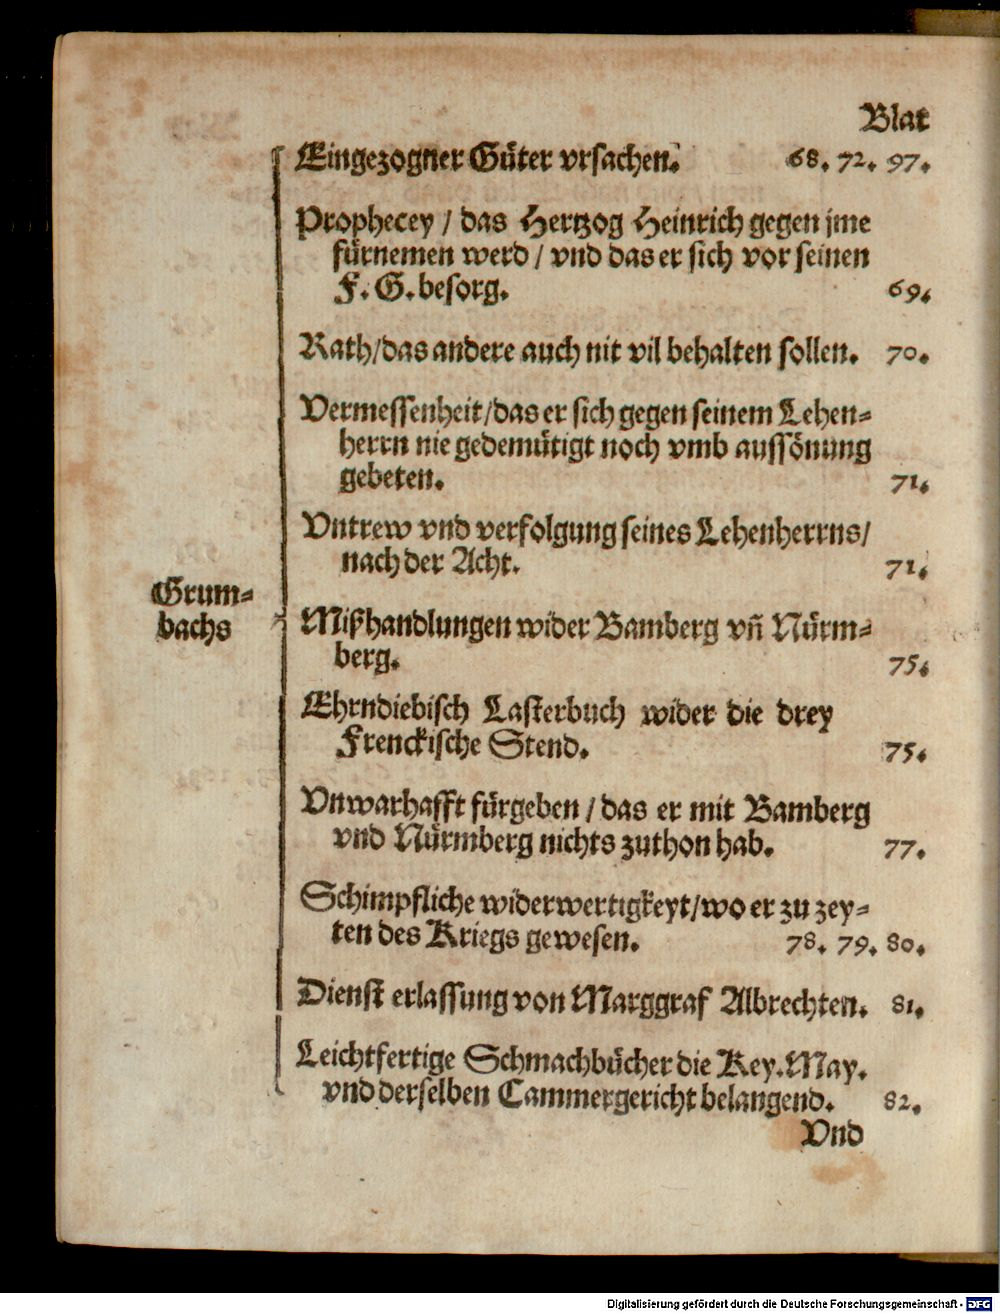 Blat
Eingezogner Güter vrsachen. 68. 72. 97.
Prophecey / das Hertzog Heinrich gegen jme
fürnemen werd / vnd das er sich vor seinen
F. G. besorg. 69.
Rath/das andere auch nit vil behalten sollen. 70.
Vermessenheit/das er sich gegen seinem Lehen=
herrn nie gedemütigt noch vmb aussönung
gebeten. 71.
Vntrew vnd verfolgung seines Lehenherrns/
nach der Acht. 71.
Grum=
bachs
Mißhandlungen wider Bamberg vñ Nürm=
berg. 75.
Ehrndiebisch Lasterbuch wider die drey
Frenckische Stend. 75.
Vnwarhafft fürgeben / das er mit Bamberg
vnd Nürmberg nichts zuthon hab. 77.
Schimpfliche widerwertigkeyt/wo er zu zey=
ten des Kriegs gewesen. 78. 79. 80.
Dienst erlassung von Marggraf Albrechten. 81.
Leichtfertige Schmachbücher die Key. May.
vnd derselben Cammergericht belangend. 82.
Vnd
Digitalisierung gefördert durch die Deutsche Forschungsgemeinschaft - DFG